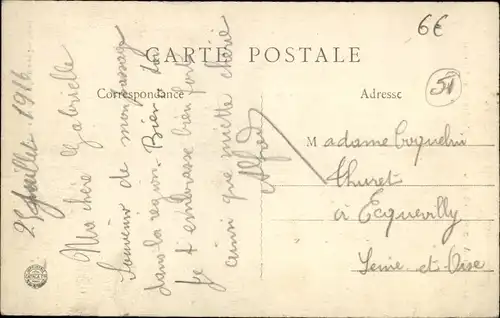 CARTE POSTALE
Correspondance
Adresse
6€
51
25 Juillet 1916
Ma chère Gabrielle
Souvenir de mon passage
dans la région. Bien à toi
Je t'embrasse bien fort
ainsi que miette chérie
Alfred
Madame Coquelin
Thuret
à Ecquevilly
Seine-et-Oise